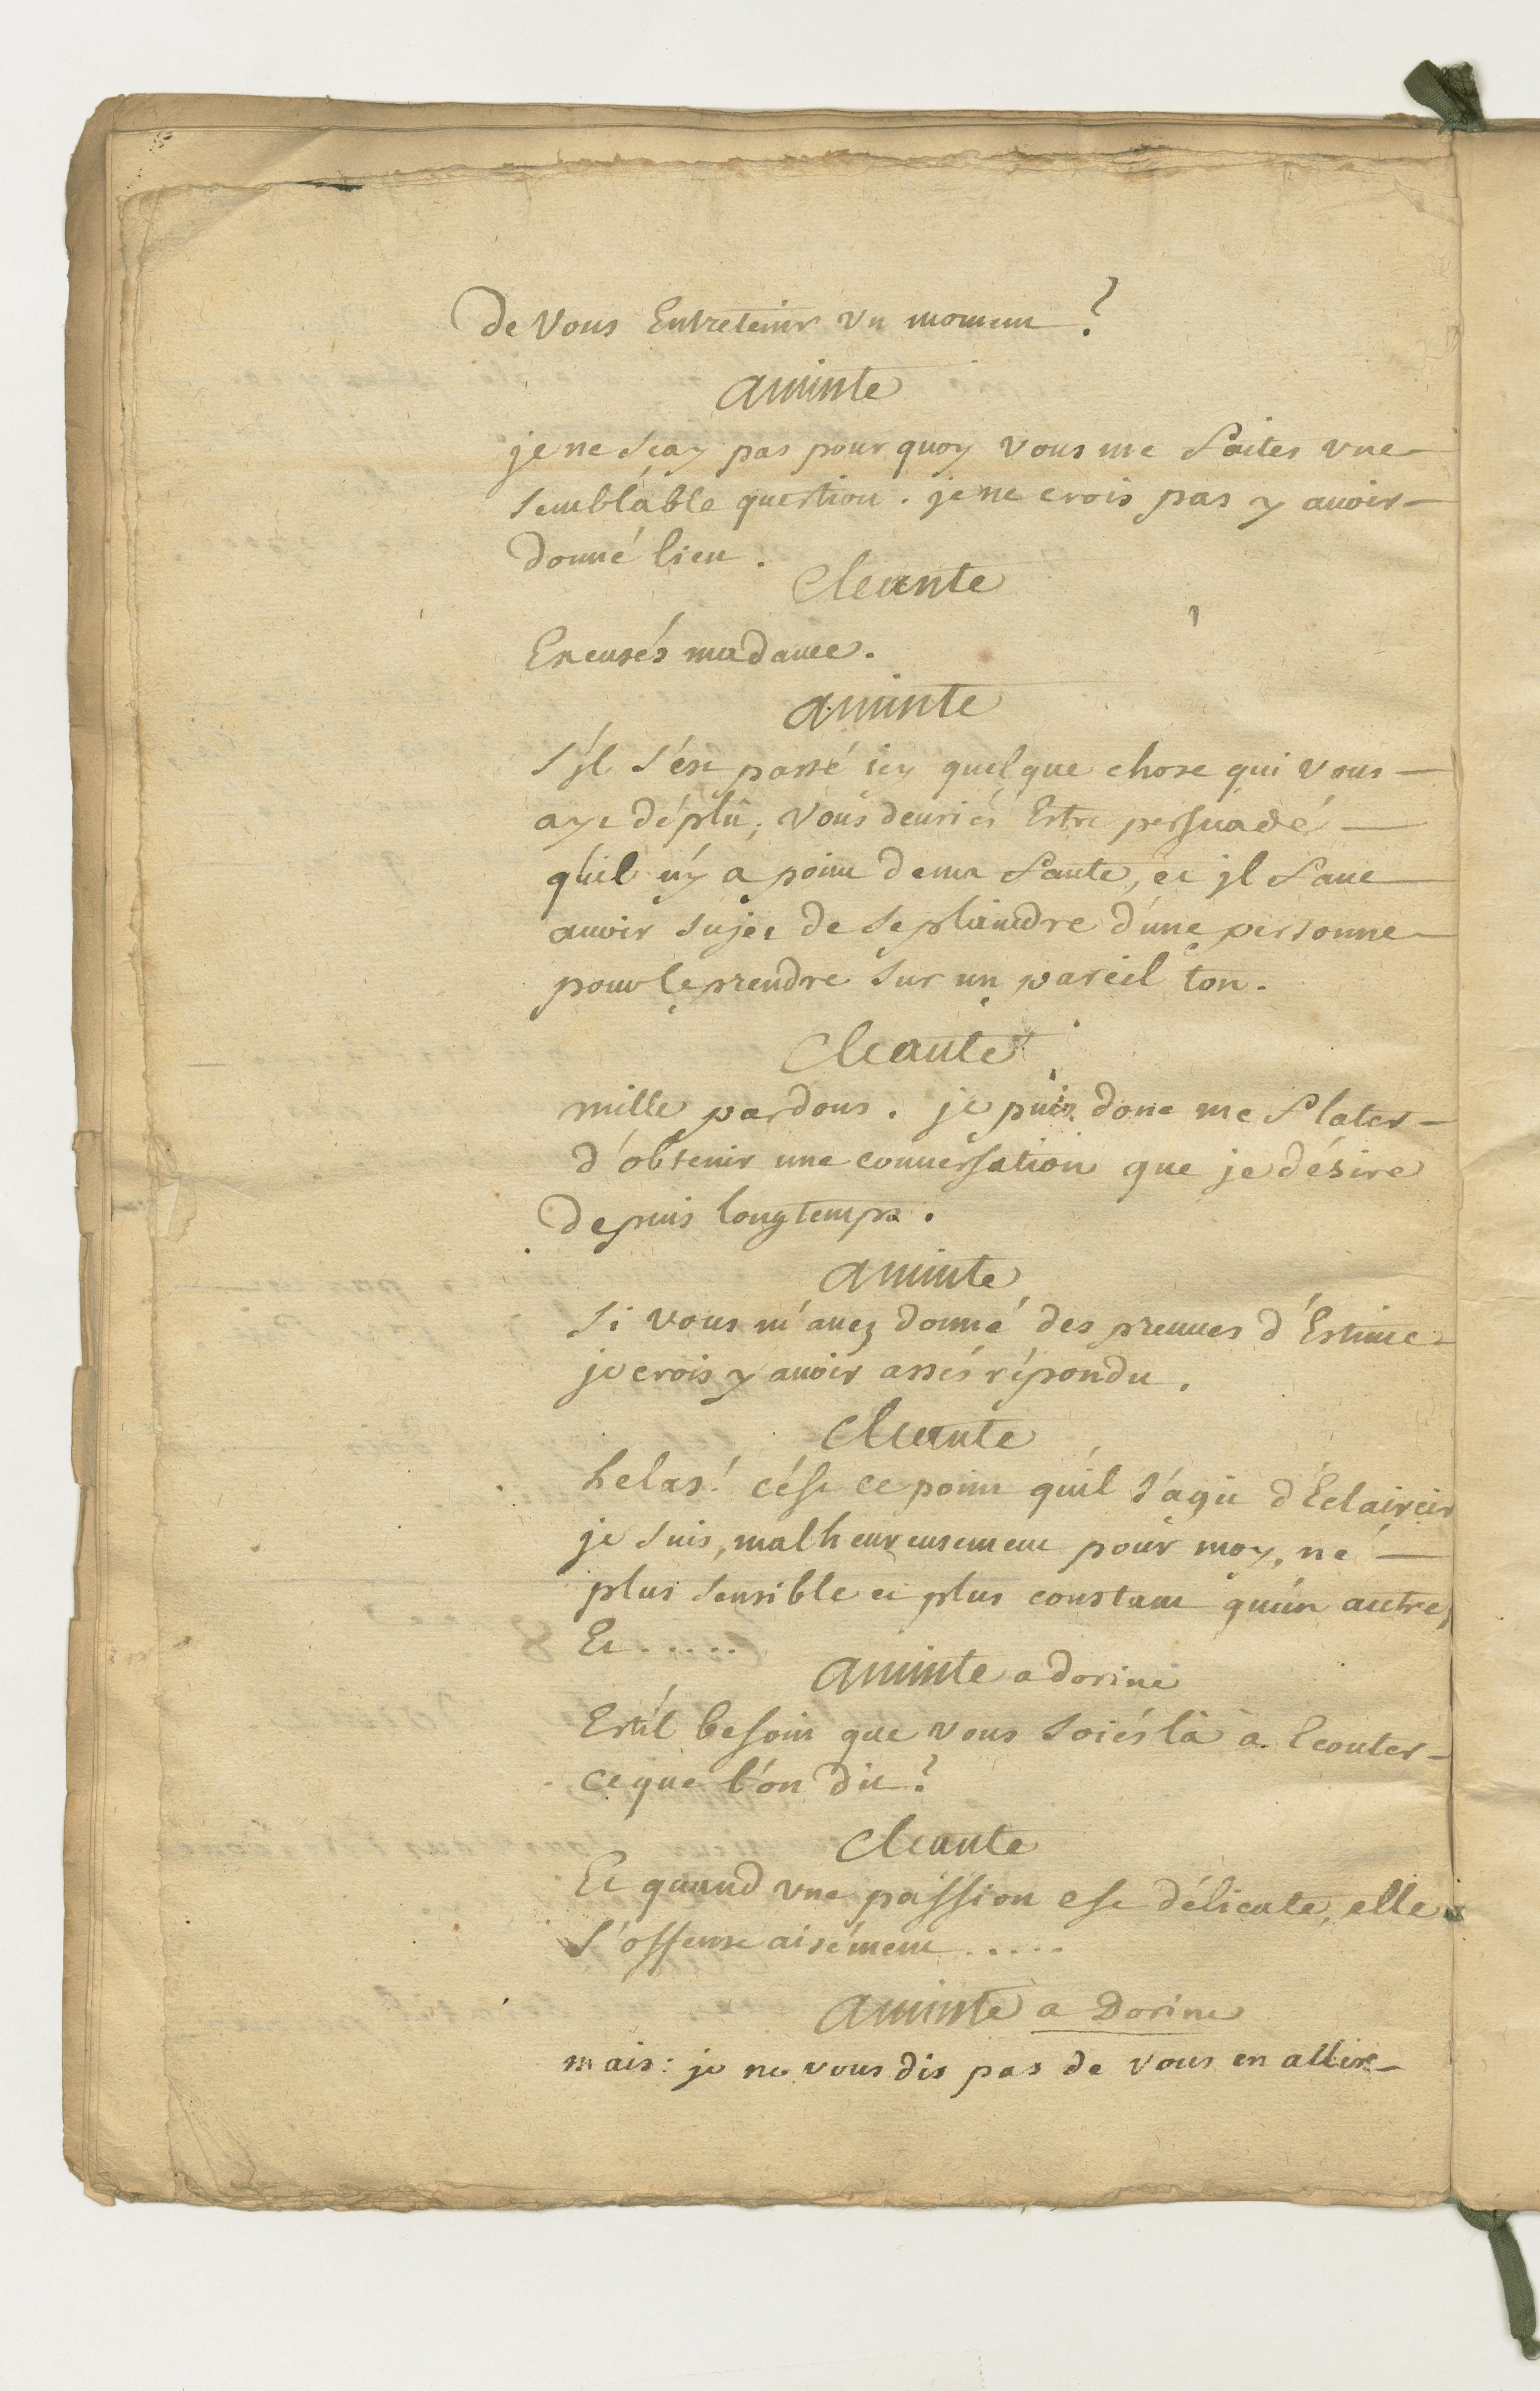 de Vous Entretenir vn moment ?
aminte
je ne sçay pas pourquoy vous me faites vne
semblable question . je ne crois pas y auoir
donné lieu .
Cleante
Excusés madame .
aminte
s'jl s'est passé icy quelque chose qui vous
aye déplû ; vous deuriés Estre persuadé
qu'il n'y a point de ma faute, et jl faut
auoir sujet de se plaindre d'une personne
pour le prendre sur un pareil ton .
Cleante
mille pardons . je puis donc me flater
d'obtenir une conuersation que je désire
depuis longtemps .
aminte
si vous m'auez donné des preuues d'Estime
je crois y auoir assés répondu .
Cleante
helas ! c'est ce point qu'il s'agit d'Eclaircir
je suis, malheureusement pour moy, né
plus sensible et plus constant qu'un autre,
Et .....
aminte a dorine
Est'il besoin que vous soiés là à Ecouter
ce que l'on dit ?
Cleante
Et quand vne passion est délicate, elle
s'offense aisément .....
aminte a Dorine
mais : je ne vous dis pas de vous en aller